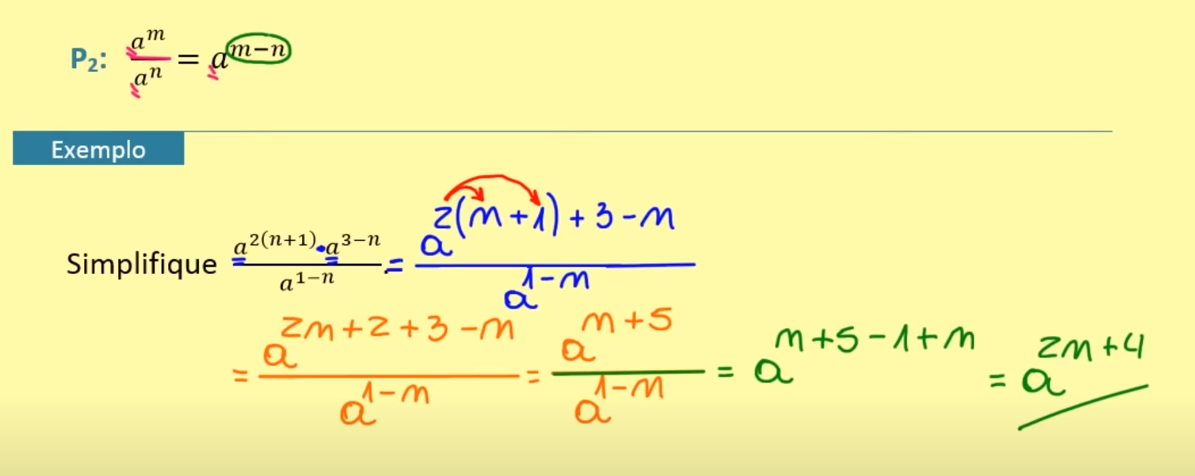 P₂: aᵐ/aⁿ = aᵐ⁻ⁿ
Exemplo
Simplifique a^{2(n+1)}·a^{3−n}/a^{1−n} = a^{2(n+1)+3−n}/a^{1−n}
= a^{2n+2+3−n}/a^{1−n} = a^{n+5}/a^{1−n} = a^{n+5−1+n} = a^{2n+4}